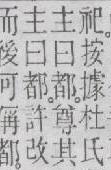 祀。按據杜氏
主曰都。尊其
主曰都。許改
而後可偁都。